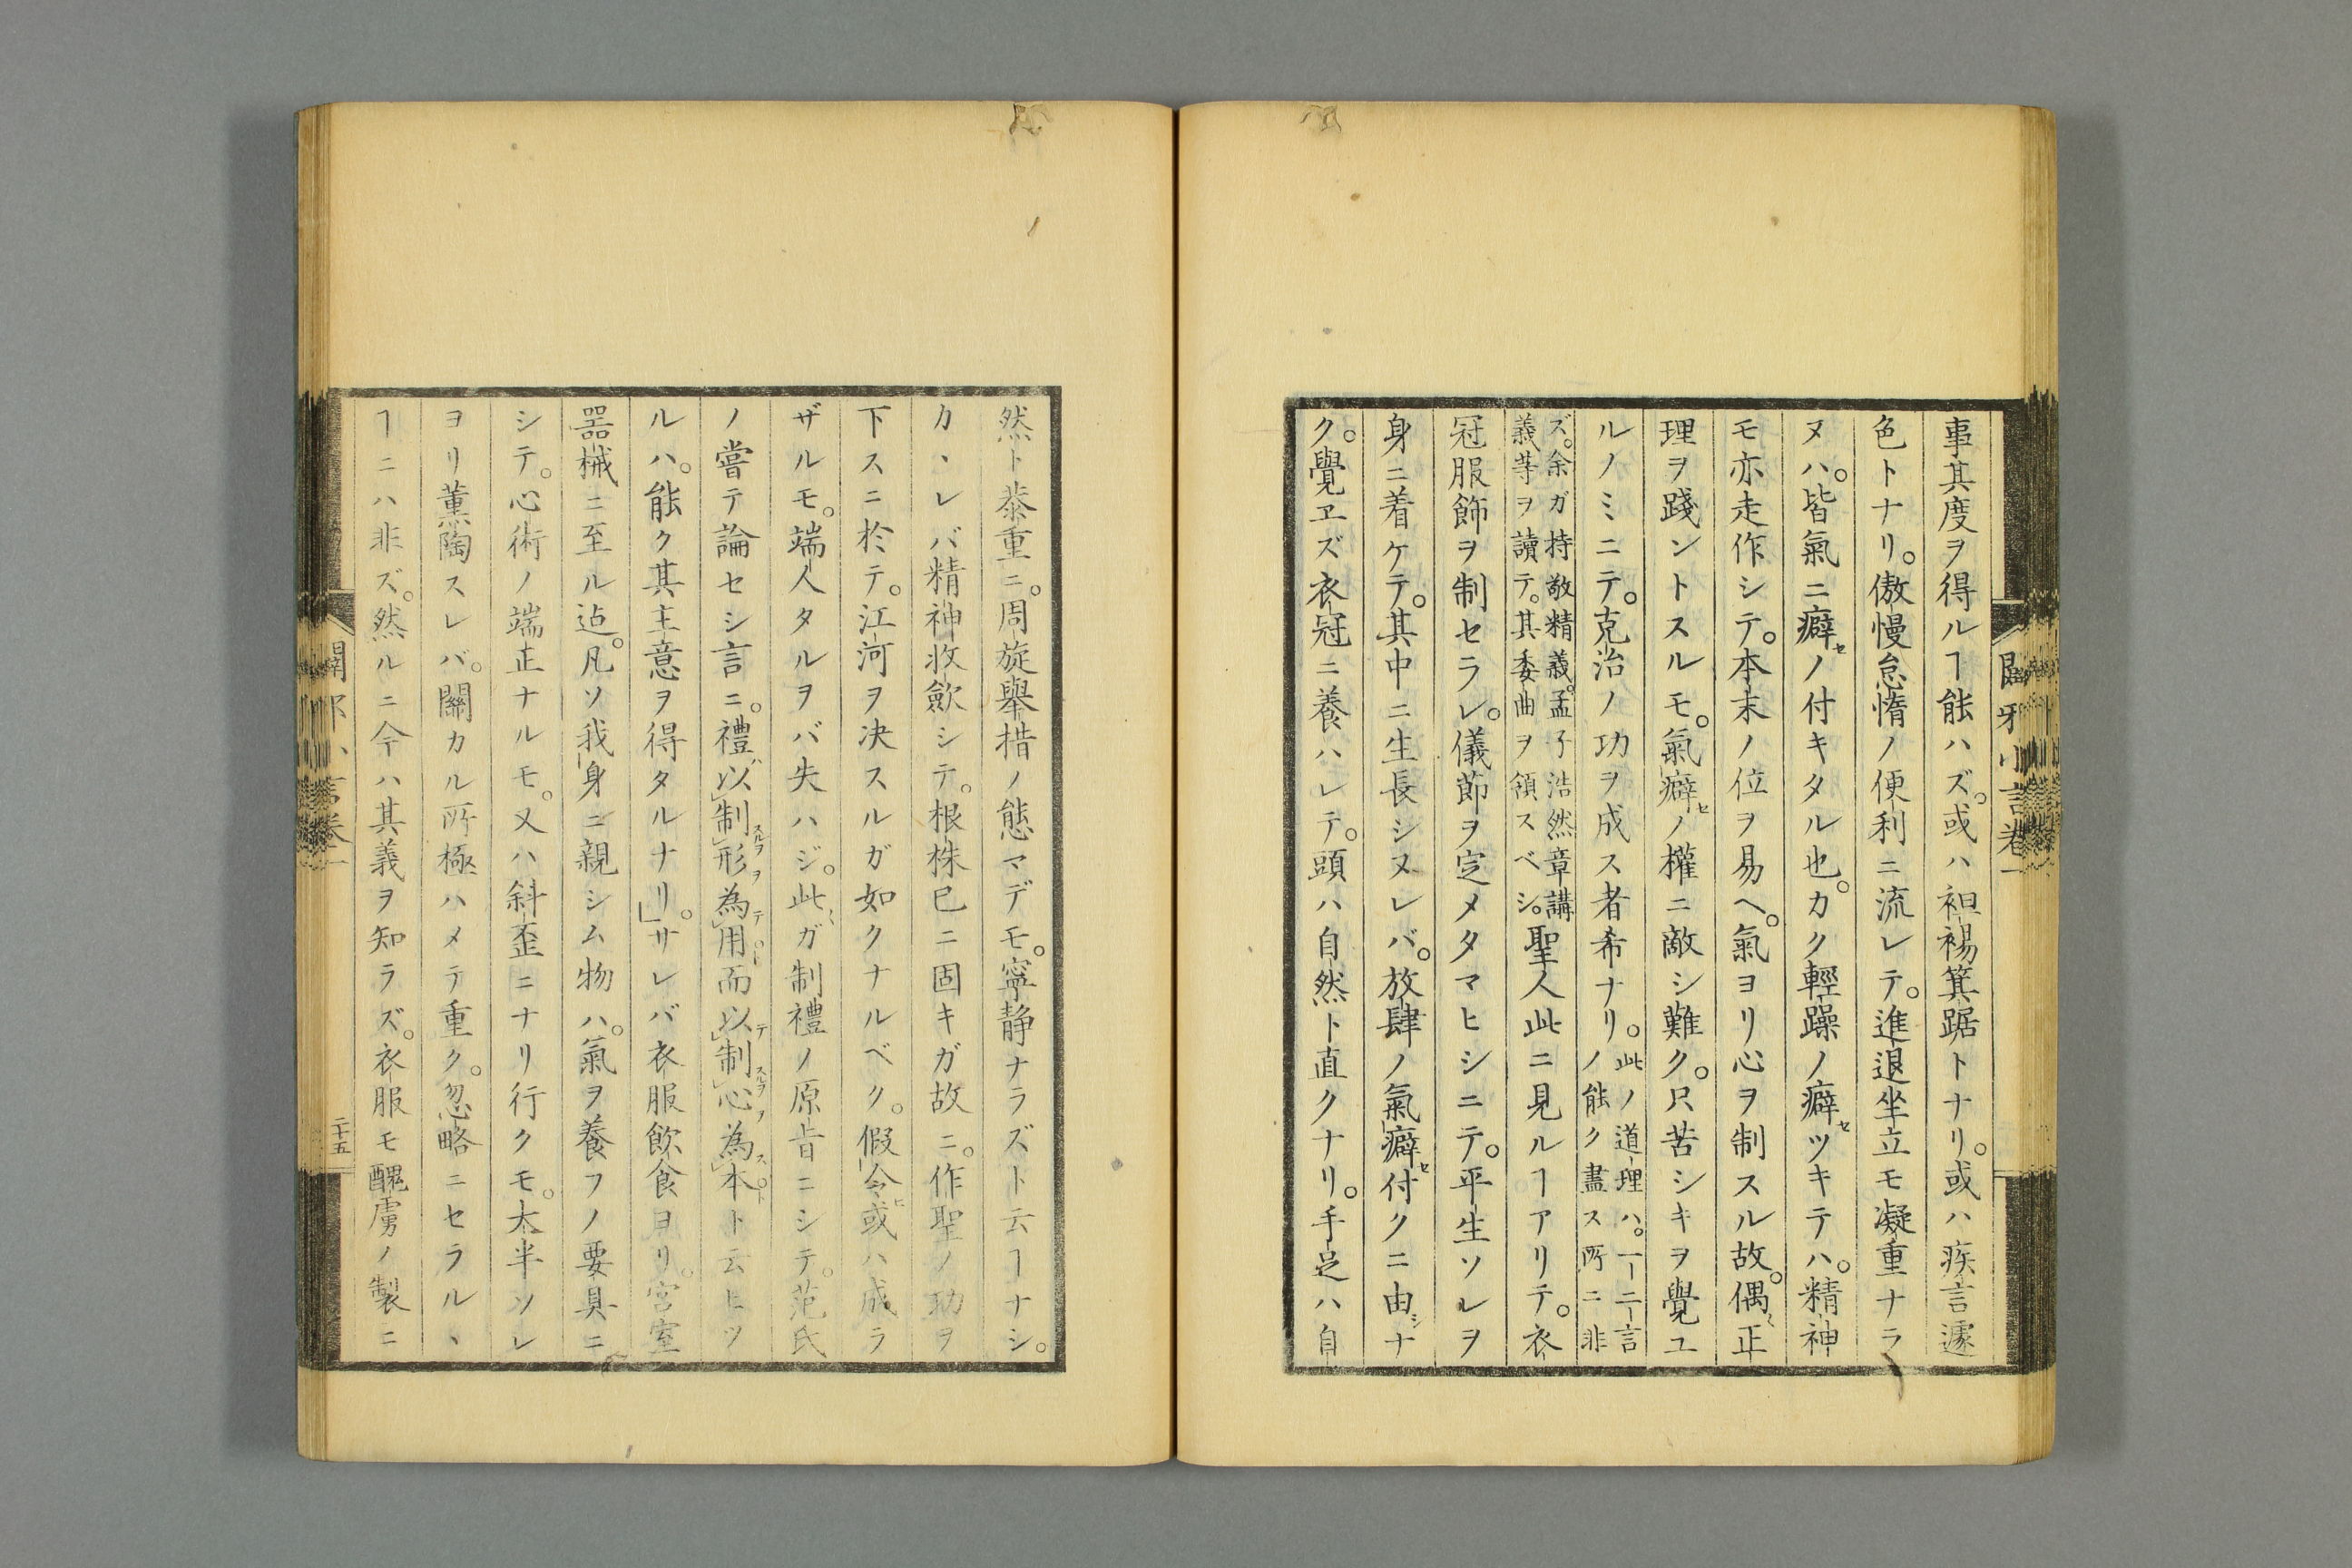 事其度ヲ得ルヿ能ハズ。或ハ袒裼箕踞トナリ。或ハ疾言遽
色トナリ。傲慢怠惰ノ便利ニ流レテ。進退坐立モ凝重ナラ
ヌハ。皆氣ニ癖セノ付キタル也。カク輕躁ノ癖セツキテハ。精神
モ亦走作シテ。本末ノ位ヲ易ヘ。氣ヨリ心ヲ制スル故。偶〻正
理ヲ踐ントスルモ。氣癖セノ權ニ敵シ難ク。只苦シキヲ覺ユ
ルノミニテ。克治ノ功ヲ成ス者希ナリ。此ノ道理ハ。一二言
ノ能ク盡ス所ニ非
ズ。余ガ持敬精義。孟子浩然章講
義等ヲ讀テ。其委曲ヲ領スベシ。聖人此ニ見ルヿアリテ。衣
冠服飾ヲ制セラレ。儀節ヲ定メタマヒシニテ。平生ソレヲ
身ニ着ケテ。其中ニ生長シヌレバ。放肆ノ氣癖セ付クニ由シナ
ク。覺ヱズ衣冠ニ養ハレテ。頭ハ自然ト直クナリ。手足ハ自
然ト恭重ニ。周旋舉措ノ態マデモ。寧静ナラズト云ヿナシ。
カヽレバ精神收歛シテ。根株已ニ固キガ故ニ。作聖ノ功ヲ
下スニ於テ。江河ヲ决スルガ如クナルベク。假令ヒ或ハ成ラ
ザルモ。端人タルヲバ失ハジ。此〻ガ制禮ノ原旨ニシテ。范氏
ノ嘗テ論セシ言ニ。禮ハ以制スルヲ形ヲ為テ用ト而以テ制スルヲ心ヲ為ス本トト云ヒツ
ルハ。能ク其主意ヲ得タルナリ。」サレバ衣服飲食ヨリ。宮室
器械ニ至ル迠。凡ソ我身ニ親シム物ハ。氣ヲ養フノ要具ニ
シテ。心術ノ端正ナルモ。又ハ斜歪ニナリ行クモ。太半ソレ
ヨリ薫陶スレバ。關カル所極ハメテ重ク。忽略ニセラルヽ
ヿニハ非ズ。然ルニ今ハ其義ヲ知ラズ。衣服モ醜虜ノ製ニ
二十五